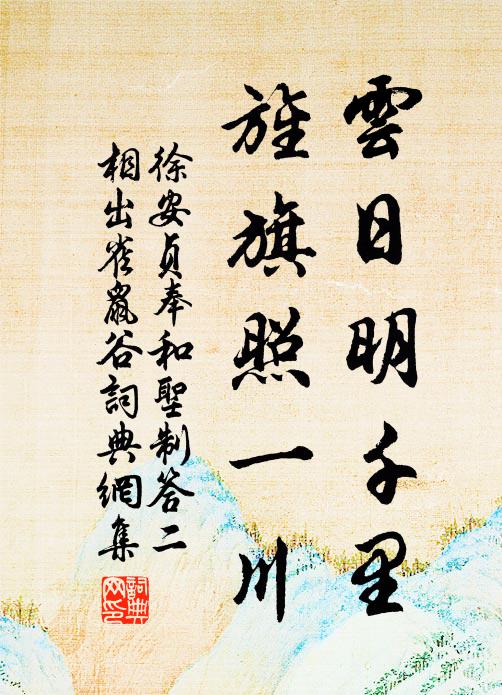 雲日明千里
旌旗照一川
徐安貞奉和聖制答二
相出雀鼠谷詞典網集
詞典
网印